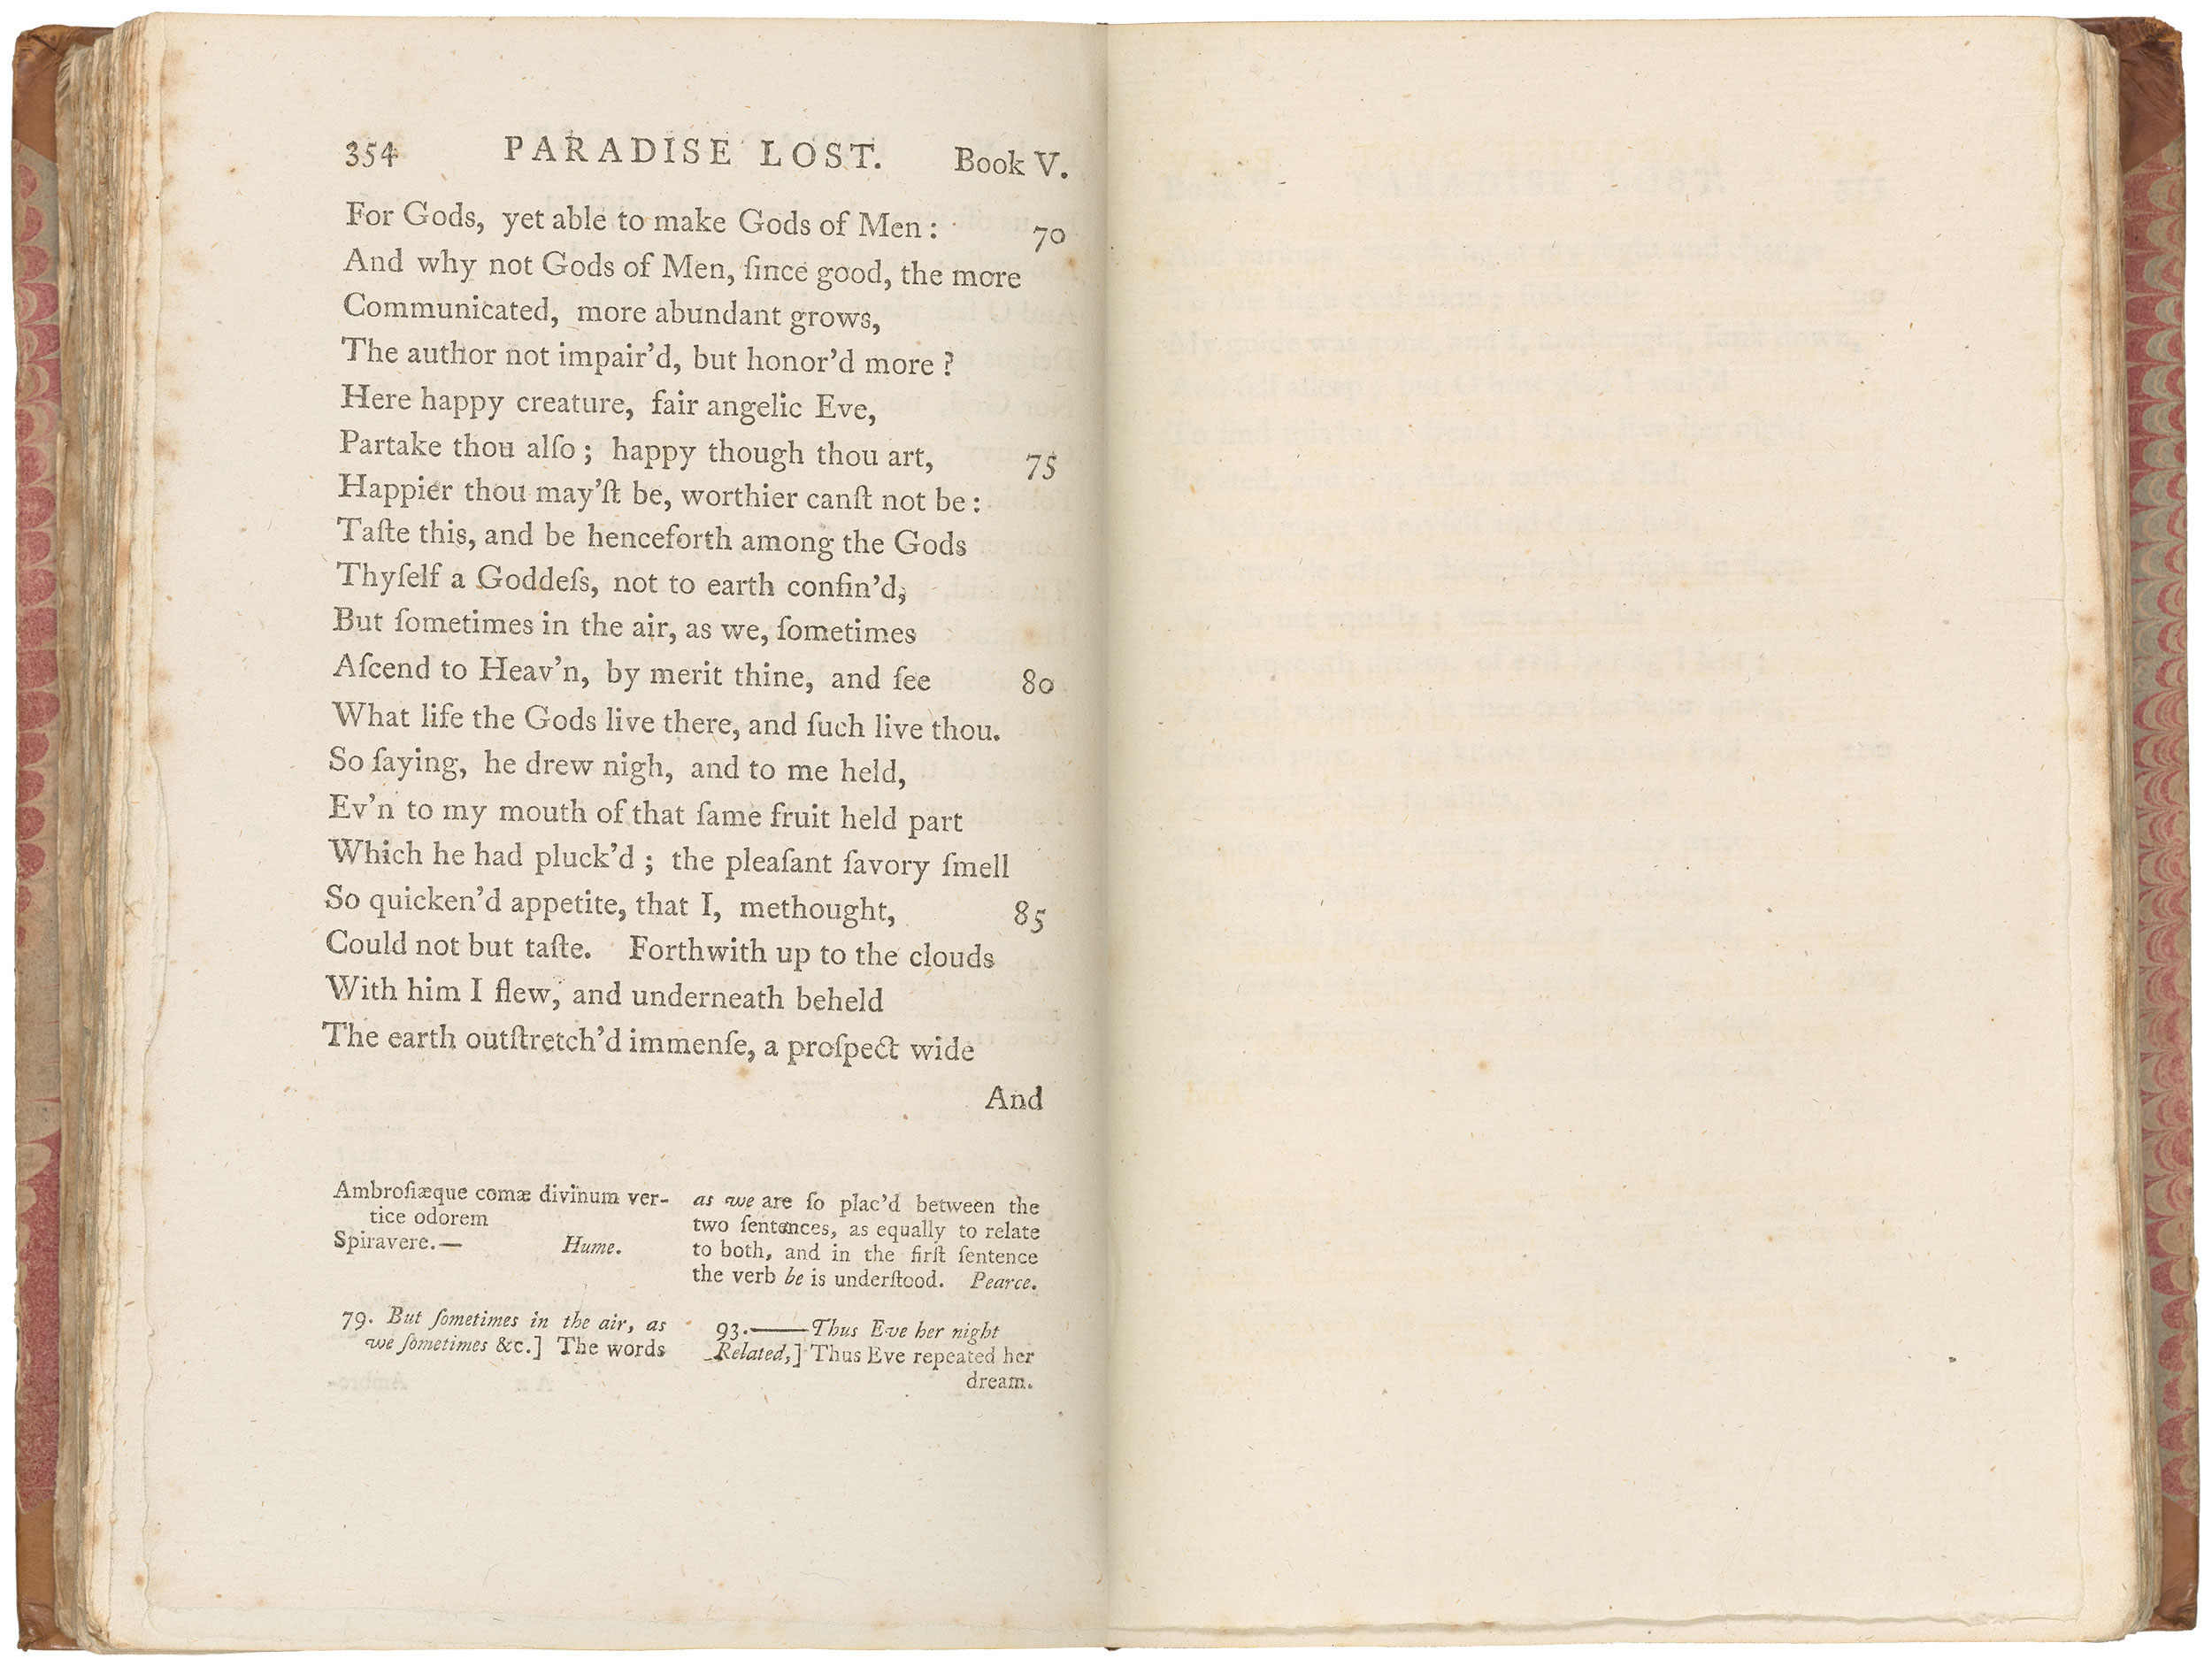 354 PARADISE LOST. Book V.
For Gods, yet able to make Gods of Men: 70
And why not Gods of Men, ſince good, the more
Communicated, more abundant grows,
The author not impair’d, but honor’d more?
Here happy creature, fair angelic Eve,
Partake thou alſo; happy though thou art, 75
Happier thou may’ſt be, worthier canſt not be:
Taſte this, and be henceforth among the Gods
Thyſelf a Goddeſs, not to earth confin’d,
But ſometimes in the air, as we, ſometimes
Aſcend to Heav’n, by merit thine, and ſee 80
What life the Gods live there, and ſuch live thou.
So ſaying, he drew nigh, and to me held,
Ev’n to my mouth of that ſame fruit held part
Which he had pluck’d; the pleaſant ſavory ſmell
So quicken’d appetite, that I, methought, 85
Could not but taſte. Forthwith up to the clouds
With him I flew, and underneath beheld
The earth outſtretch’d immenſe, a proſpect wide
And
Ambroſiæque comæ divinum ver-
tice odorem
Spiravere.— Hume.
79. But ſometimes in the air, as
we ſometimes &c.] The words
as we are ſo plac’d between the
two ſentences, as equally to relate
to both, and in the firſt ſentence
the verb be is underſtood. Pearce.
93.——Thus Eve her night
Related,] Thus Eve repeated her
dream.